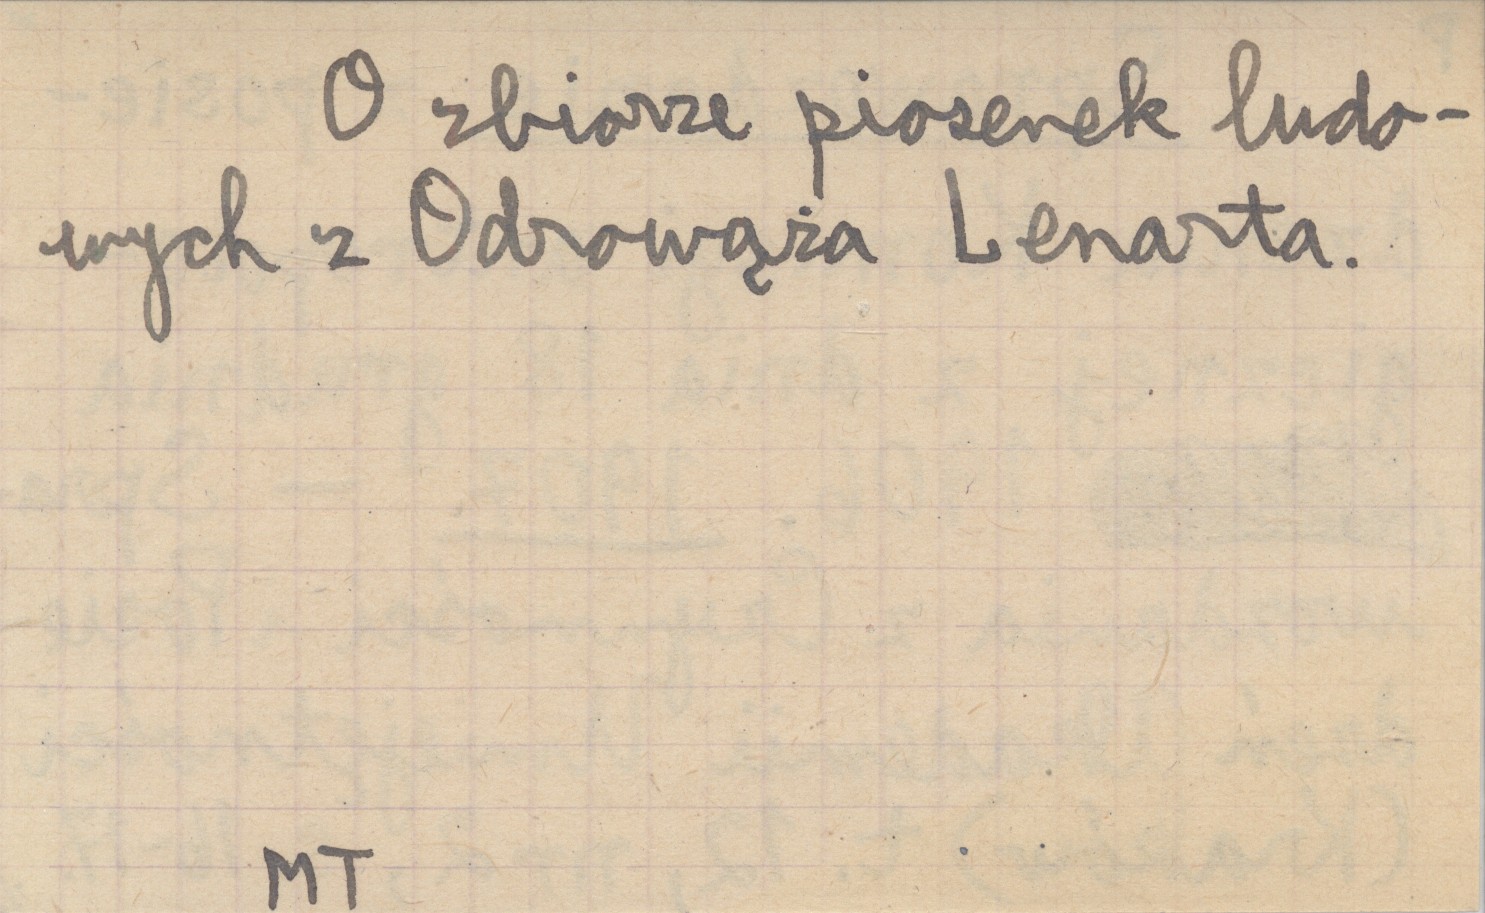 O zbiorze piosenek ludo-
wych z Odrowąża Lenarta.
MT